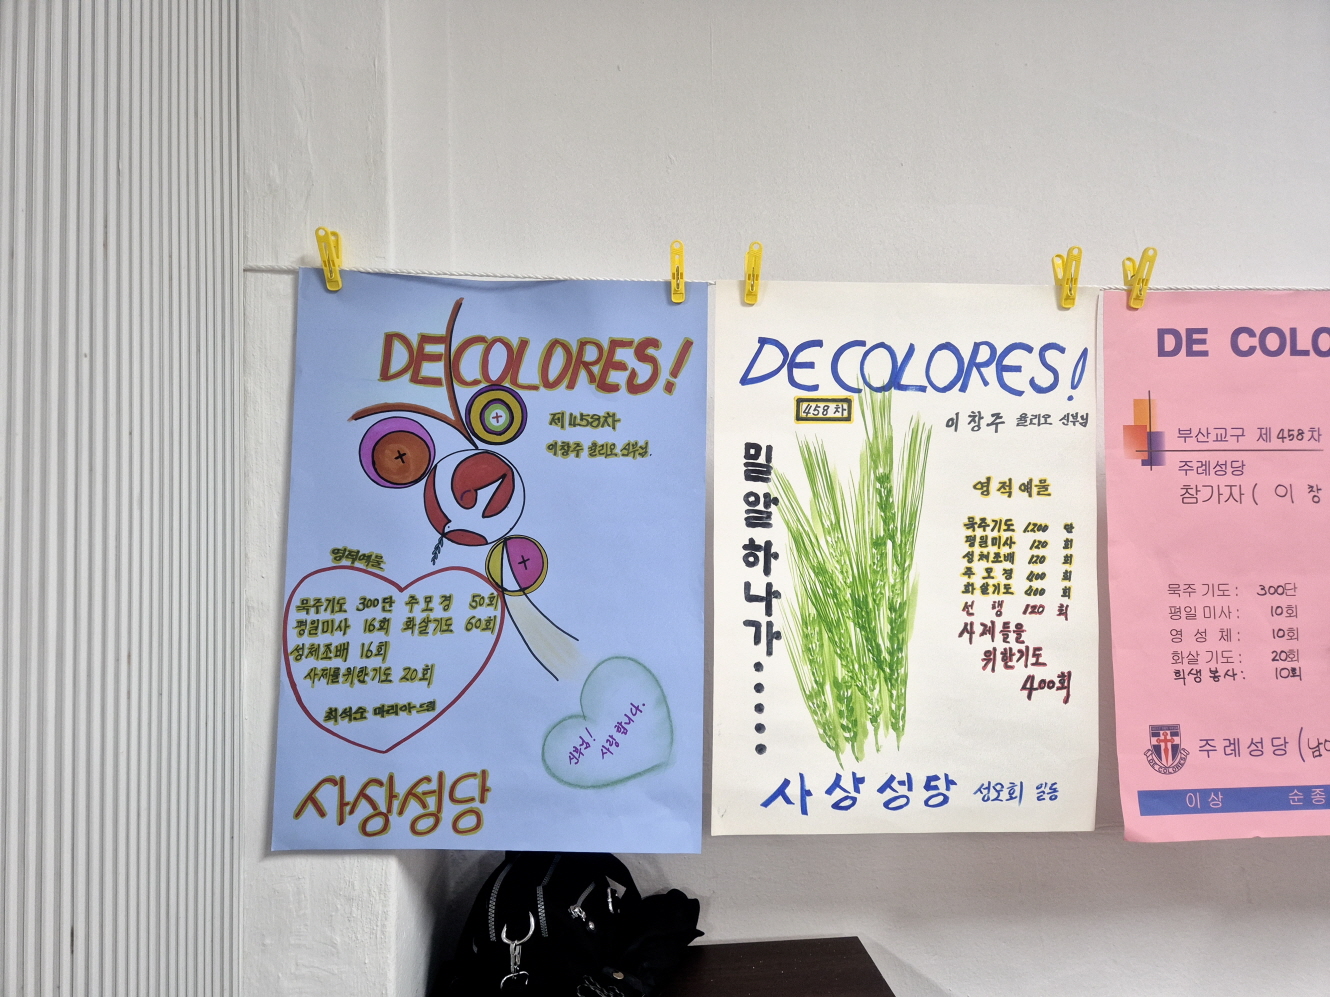 DE COLORES!
제458차
이창주 율리오 신부님.
영적예물
묵주기도 300단 주모경 50회
평일미사 16회 화살기도 60회
성체조배 16회
사제를위한기도 20회
최석순 마리아드림
신부님!
사랑합니다.
사상성당
DE COLORES!
458차
이창주 율리오 신부님
밀알하나가......
영적예물
묵주기도 1200 단
평일미사 120 회
성체조배 120 회
주모경 400 회
화살기도 400 회
선행 120 회
사제들을
위한기도
400회
사상성당 성오회 일동
DE COLO
부산교구 제458차
주례성당
참가자 ( 이 창
묵주기도: 300단
평일미사: 10회
영성체: 10회
화살기도: 20회
희생봉사: 10회
DE COLORES
주례성당(남
이상 순종